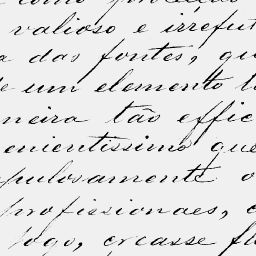 como
valioso e irrefut
a das fontes, qu
de um elemento t
neira tão effic
enientissimo que
pulosamente o
profissionaes, e
fogo, creasse fl